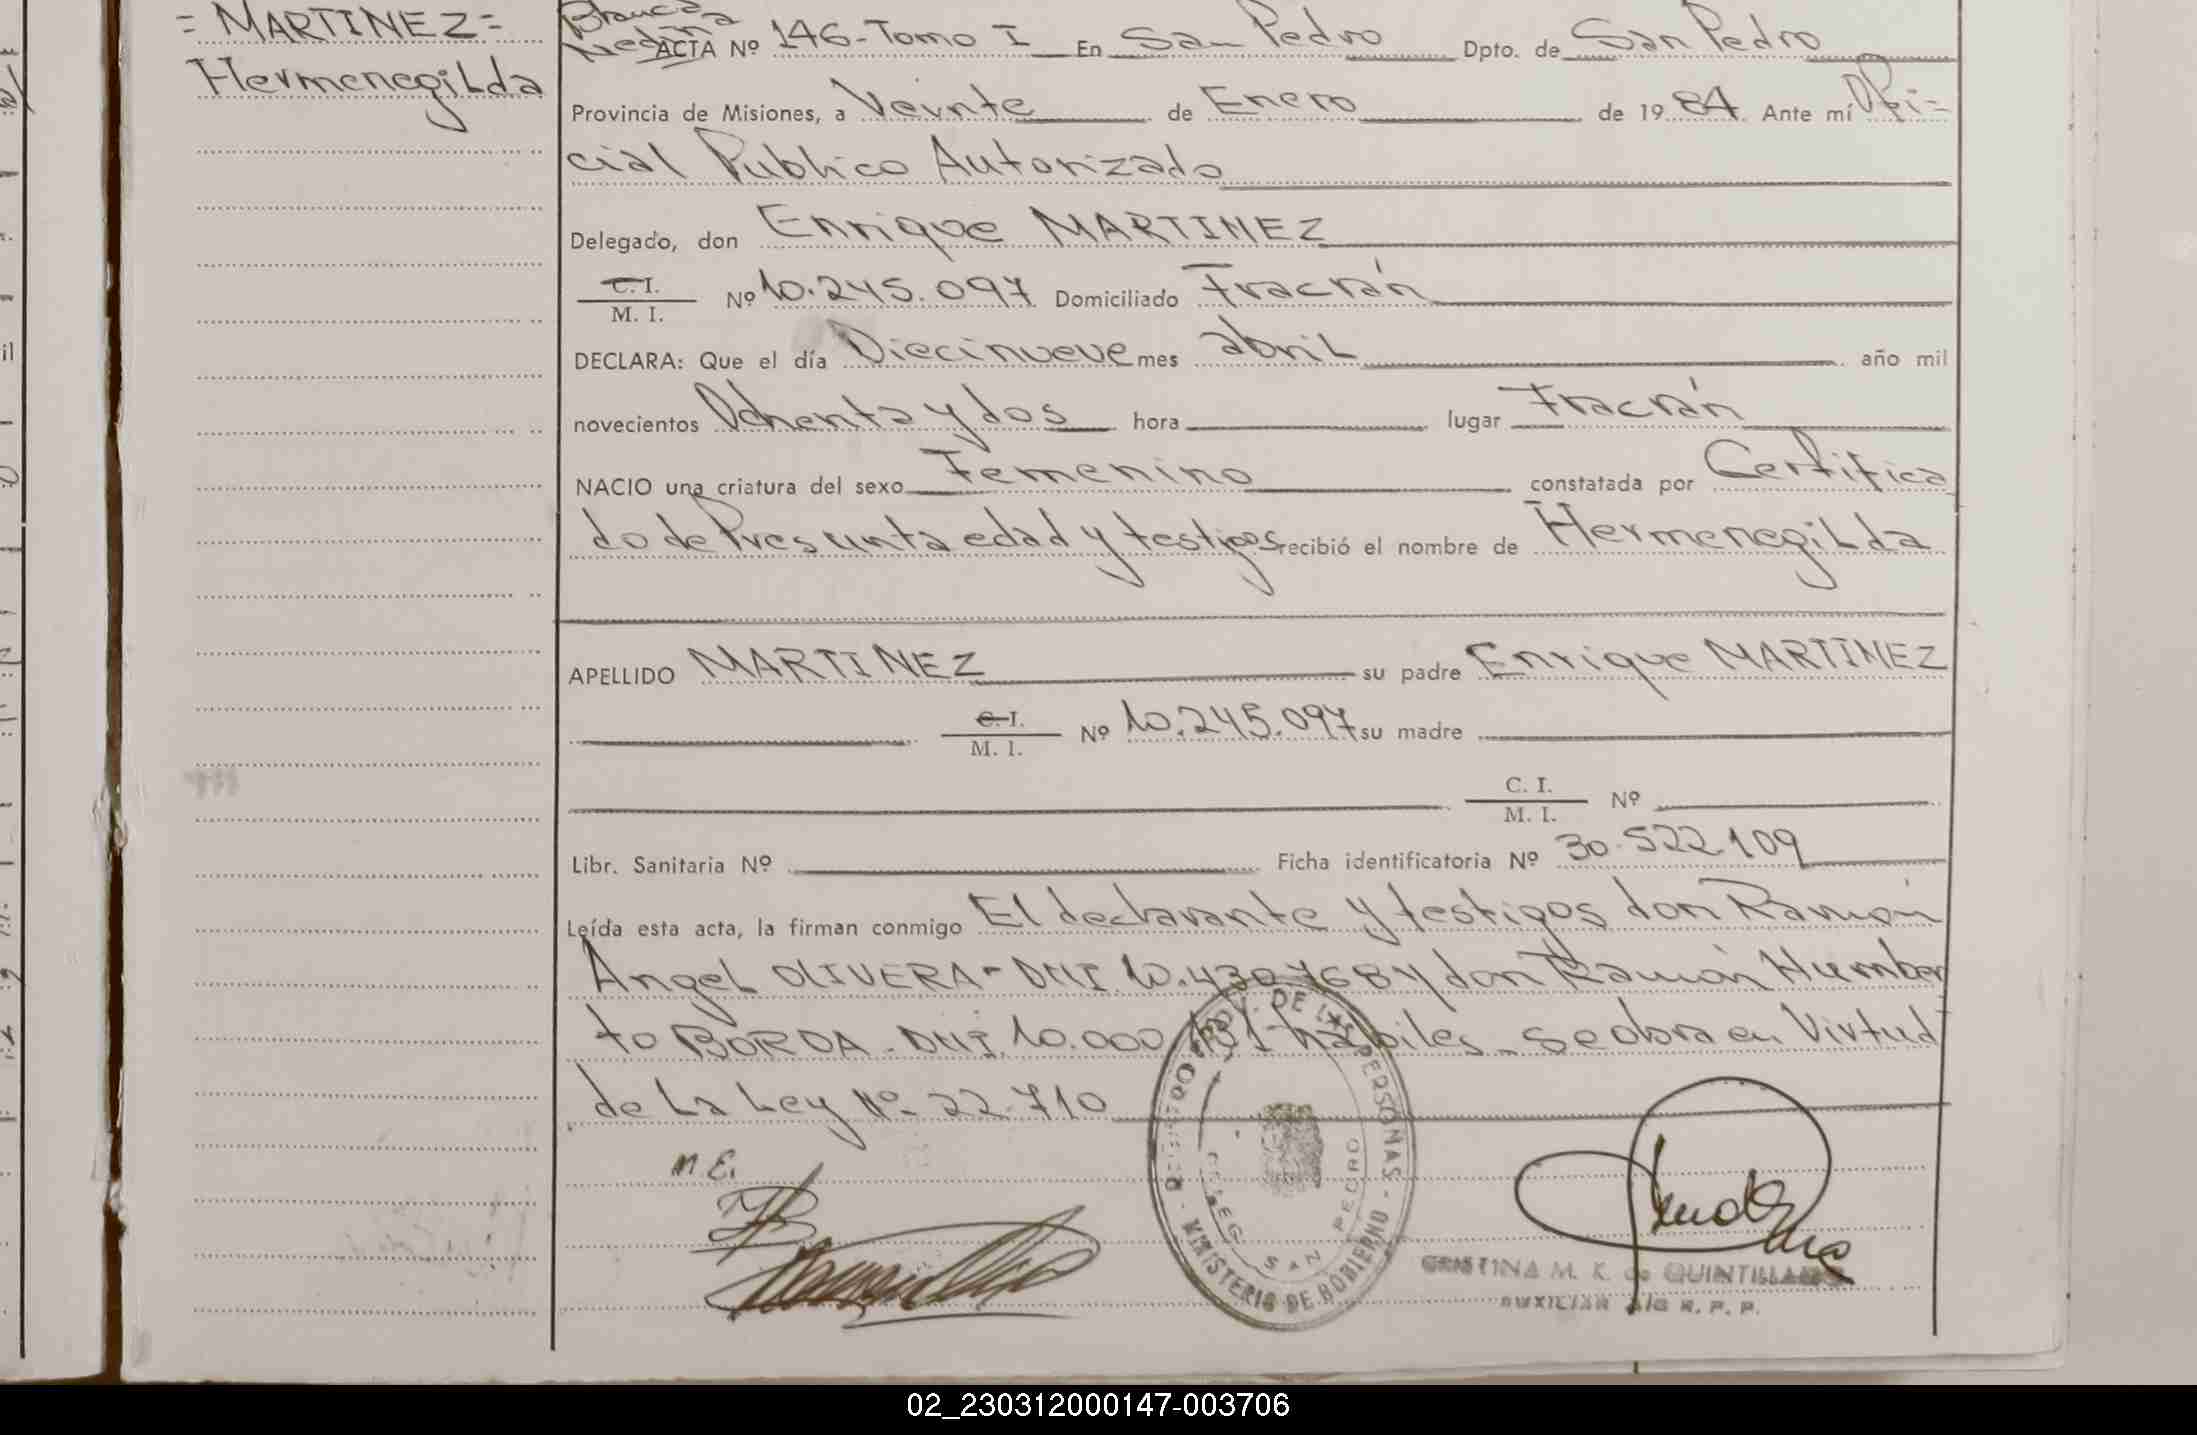 = MARTINEZ =
Hermenegilda
Blanca
ACTA Nº 146-Tomo I En San Pedro Dpto. de San Pedro
Provincia de Misiones, a Veinte de Enero de 1984 Ante mí Ofi-
cial Publico Autorizado
Delegado, don Enrique MARTINEZ
C. I.
M. I.
Nº 10.245.097 Domiciliado Fracrán
DECLARA: Que el día Diecinueve mes abril año mil
novecientos Ochenta y dos hora lugar Fracrán
NACIO una criatura del sexo Femenino constatada por Certifica
do de Presunta edad y testigos recibió el nombre de Hermenegilda
APELLIDO MARTINEZ su padre Enrique MARTINEZ
C. I.
M. I.
Nº 10.245.097 su madre
C. I.
M. I.
Nº
Libr. Sanitaria Nº Ficha identificatoria Nº 30.522.109
Leída esta acta, la firman conmigo El declarante y testigos don Ramón
Angel OLIVERA - DNI 10.430.768 y don Ramón Humber
to BORDA - DNI. 10.000 habiles - se obra en Virtud
de La Ley Nº 22.710
M. E.
DE LAS PERSONAS - MINISTERIO DE GOBIERNO
SAN PEDRO
CRISTINA M. K. de QUINTILLAN
AUXILIAR A/C R. P. P.
02_230312000147-003706